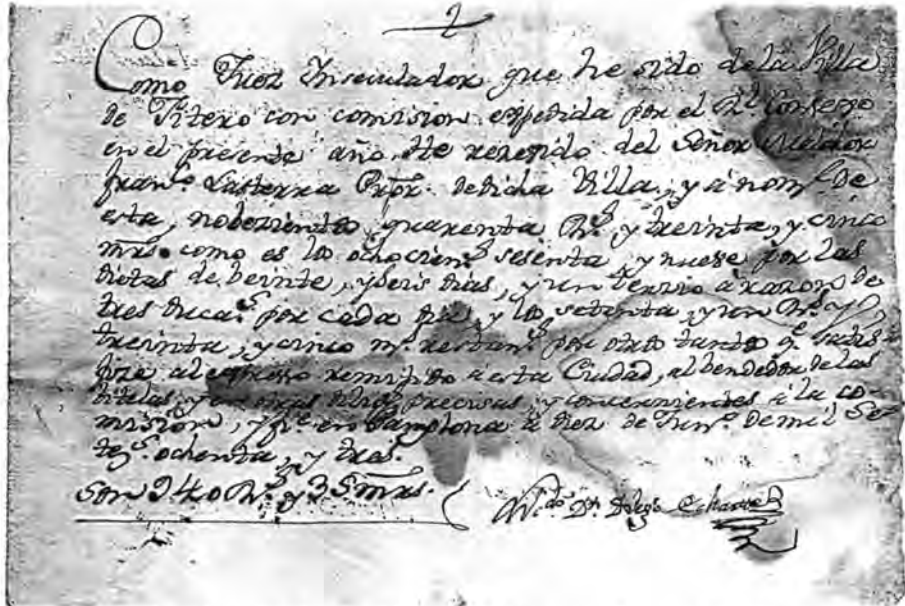 2
Como Juez Inseculador que he sido de la Villa
de Fitero con comision expedida por el Rl. Consejo
en el presente año, He recevido del Señor
franco. Lasterra de dicha Villa, y à nome. de
esta, nobezientos quarenta Rs. y treinta, y cinco
mrs. como es los ochocientos. sesenta, y nuebe por las
dietas de beinte, y seis dias, y un terzio à razon de
tres ducas. por cada dia, y los setenta, y un Rs. y
treinta, y cinco ms. restants. por otro tanto qe. satis-
fize al expresso remitido à esta Ciudad, al bendedor de las
bitelas, y precisas, y concernientes à la co-
mision, y en Pamplona à diez de Junio. de mil Se-
tezs. ochenta, y tres.
Son 940 Rs. y 35 mrs.
Licdo. Dn. Echarre